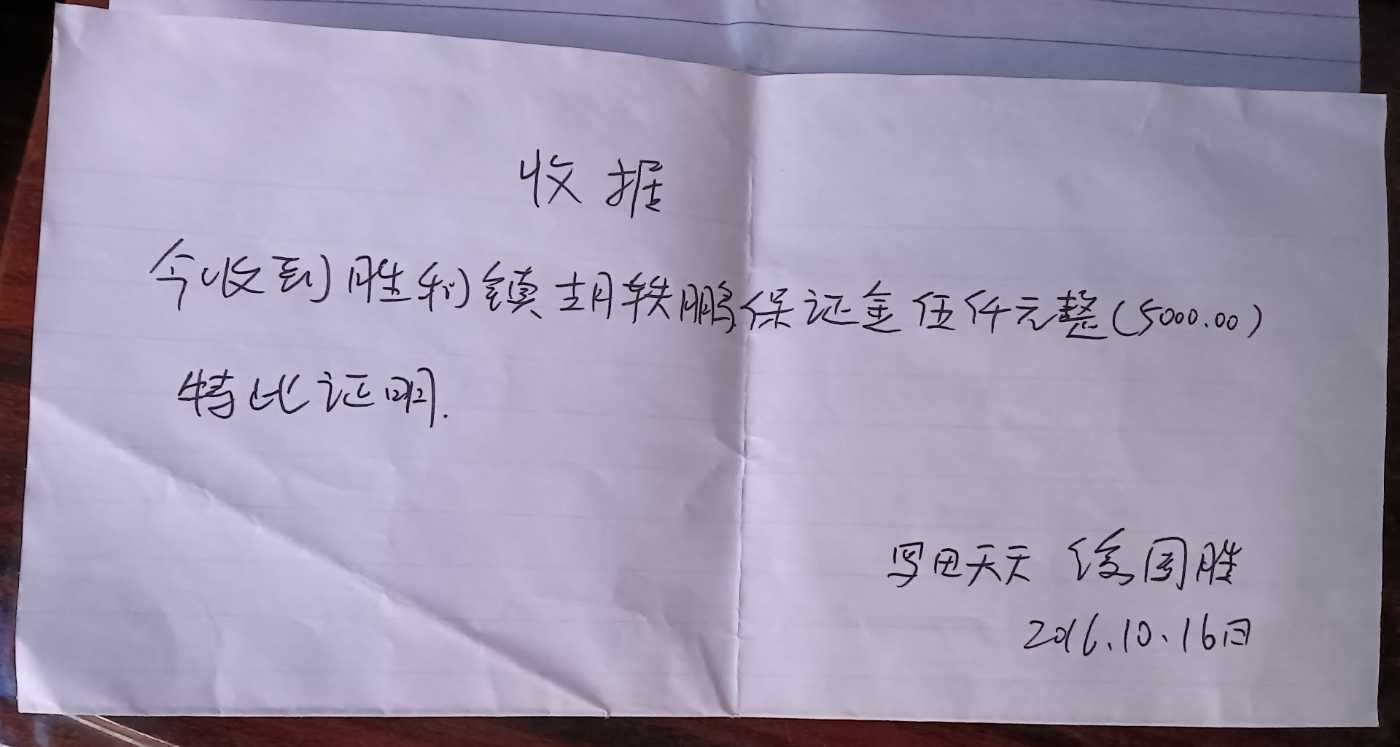 收据
今收到胜利镇胡轶鹏保证金伍仟元整(5000.00)
特此证明.
天天 国胜
2016.10.16日